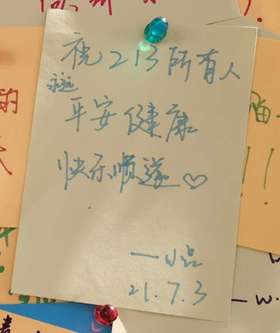 祝213所有人
永远
平安健康
快乐顺遂♡
21.7.3